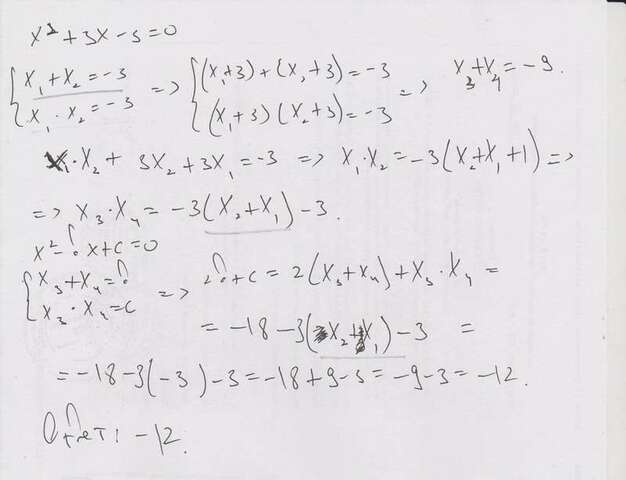 x² + 3x - 3 = 0
{ x₁ + x₂ = -3 => { (x₁+3) + (x₂+3) = -3 => x₃ + x₄ = -9.
x₁ · x₂ = -3 (x₁+3) (x₂+3) = -3
x₁ · x₂ + 3x₂ + 3x₁ = -3 => x₁ · x₂ = -3(x₂+x₁+1) =>
=> x₃ · x₄ = -3(x₂+x₁) - 3.
x² - в x + c = 0
{ x₃ + x₄ = в => 2в + c = 2(x₃+x₄) + x₃ · x₄ =
x₃ · x₄ = c
= -18 - 3(x₂ + x₁) - 3 =
= -18 - 3(-3) - 3 = -18 + 9 - 3 = -9 - 3 = -12.
Ответ: -12.